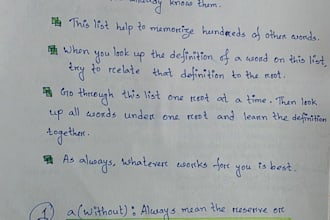 already know them.
This list help to memorize hundreds of other words.
When you look up the definition of a word on this list,
try to relate that definition to the root.
Go through this list one root at a time. Then look
up all words under one root and learn the definition
together.
As always, whatever works for you is best.
1 a (without): Always mean the reserve or